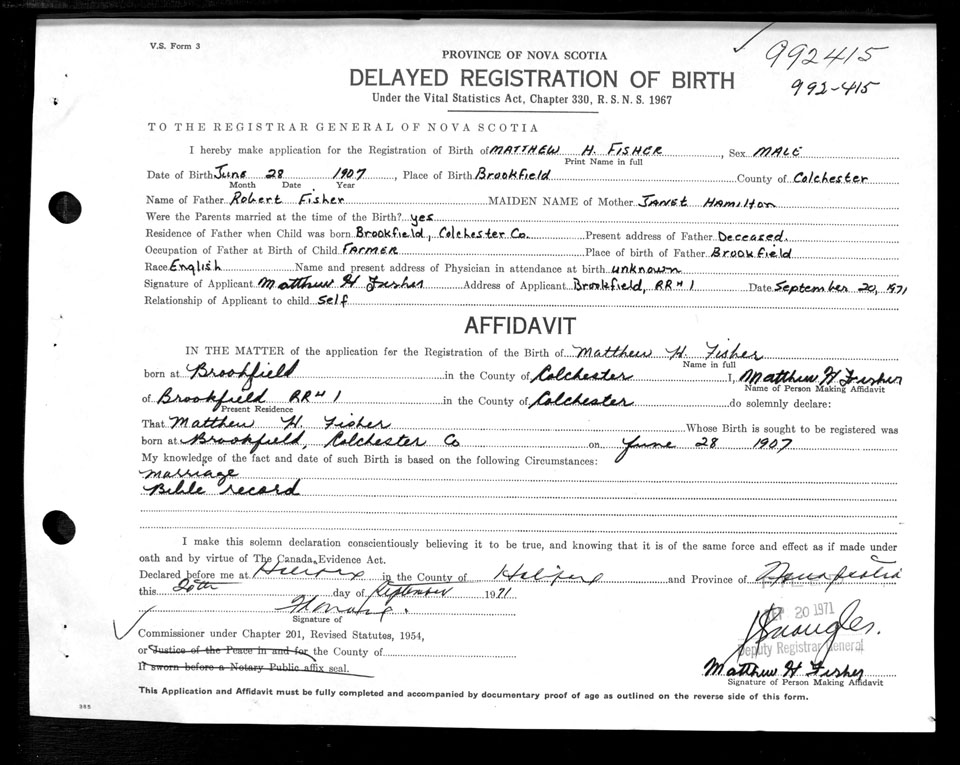 V.S. Form 3
992415
992-415
PROVINCE OF NOVA SCOTIA
DELAYED REGISTRATION OF BIRTH
Under the Vital Statistics Act, Chapter 330, R.S.N.S. 1967
TO THE REGISTRAR GENERAL OF NOVA SCOTIA
I hereby make application for the Registration of Birth of MATTHEW H. FISHER, Sex MALE
Print Name in full
Date of Birth June 28 1907, Place of Birth Brookfield County of Colchester
Month Date Year
Name of Father Robert Fisher MAIDEN NAME of Mother JANET HAMILTON
Were the Parents married at the time of the Birth? yes
Residence of Father when Child was born Brookfield, Colchester Co. Present address of Father Deceased.
Occupation of Father at Birth of Child FARMER Place of birth of Father Brookfield
Race English Name and present address of Physician in attendance at birth unknown
Signature of Applicant Matthew H Fisher Address of Applicant Brookfield, RR#1 Date September 20, 1971
Relationship of Applicant to child Self
AFFIDAVIT
IN THE MATTER of the application for the Registration of the Birth of Matthew H. Fisher
Name in full
born at Brookfield in the County of Colchester I, Matthew H Fisher
Name of Person Making Affidavit
of Brookfield RR#1 in the County of Colchester do solemnly declare:
Present Residence
That Matthew H. Fisher Whose Birth is sought to be registered was
born at Brookfield, Colchester Co on June 28 1907
My knowledge of the fact and date of such Birth is based on the following Circumstances:
Marriage
Bible record
I make this solemn declaration conscientiously believing it to be true, and knowing that it is of the same force and effect as if made under
oath and by virtue of The Canada Evidence Act.
Declared before me at Halifax in the County of Halifax and Province of Nova Scotia
this 20th day of September 1971
Signature of
SEP 20 1971
Commissioner under Chapter 201, Revised Statutes, 1954,
Deputy Registrar General
or Justice of the Peace in and for the County of
If sworn before a Notary Public affix seal.
Matthew H Fisher
Signature of Person Making Affidavit
This Application and Affidavit must be fully completed and accompanied by documentary proof of age as outlined on the reverse side of this form.